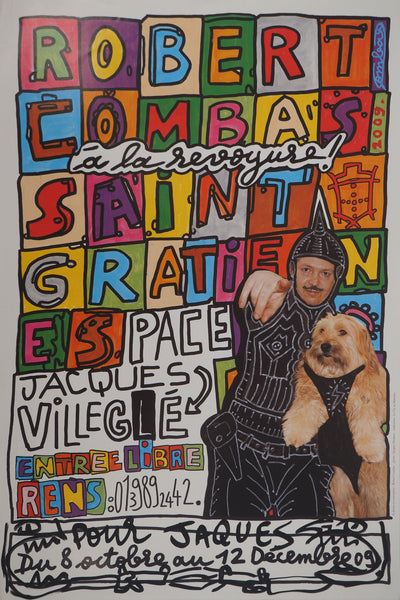 ROBERT
COMBAS
à la revoyure!
SAINT
GRATIEN
ESPACE
JACQUES
VILLEGLÉ
ENTREE LIBRE
RENS: 0139892442.
POUR JAQUES
Du 8 octobre au 12 Décembre 09
combas
2009.